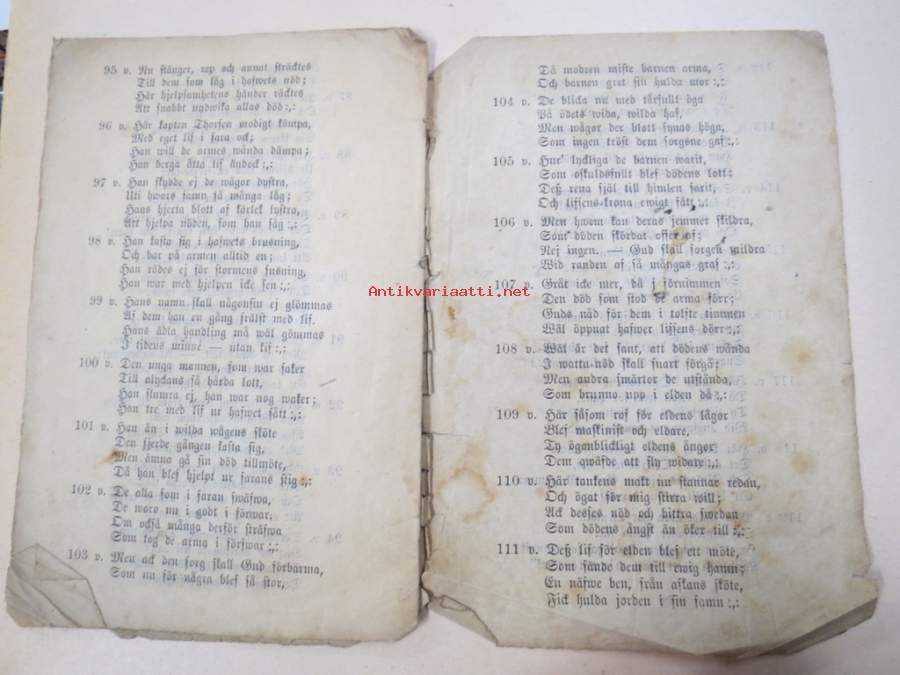 95 v. Nu stänger, rep och annat sträcktes
Till dem som låg i hafwets nöd;
Här hjelpsamhetens händer räcktes
Att snabbt undwika allas död:,:
96 v. Här kapten Thorsen modigt kämpa,
Med eget lif i fara ock;
Han will de armes wånda dämpa;
Han berga åtta lif ändock:,:
97 v. Han skydde ej de wågor dystra,
Uti hwars famn så många låg;
Hans hjerta blott af kärlek lystra,
Att hjelpa nöden, som han såg:,:
98 v. Han kasta sig i hafwets brusning,
Och bar på armen alltid en;
Han rädes ej för stormens susning,
Han war med hjelpen icke sen:,:
99 v. Hans namn skall någonsin ej glömmas
Af dem han en gång frälst med lif.
Hans ädla handling må wäl gömmas
I tidens minne — utan lif:,:
100 v. Den unga mannen, som war säker
Till olyckans så hårda lott,
Han slumra ej, han war nog waker;
Han tre med lif ur hafwet fått:,:
101 v. Han än i wilda wågens sköte
Den fjerde gången kasta sig,
Men ämna gå sin död tillmöte,
Då han blef hjelpt ur farans stig:,:
102 v. De alla som i faran swäfwa,
De woro nu i godt i förwar.
Om också många derför sträfwa
Som tog de arma i förswar:,:
103 v. Men ack den sorg skall Gud förbarma,
Som nu för några blef så stor,
Då modren miste barnen arma,
Och barnen gret sin hulda mor:,:
104 v. De blicka nu med tårfullt öga
På ödets wida, wilda haf,
Men wågor der blott synas höga,
Som ingen tröst dem sorgsne gaf:,:
105 v. Hur' lyckliga de barnen warit,
Som oskuldsfullt blef dödens lott;
Deß rena själ till himlen farit,
Och lifsens-krona ewigt fått:,:
106 v. Men hwem kan deras jemmer skildra,
Som döden skördat offer af;
Nej ingen. — Gud skall sorgen mildra
Wid randen af så mångas graf:,:
107 v. Gråt icke mer, då j förnimmen
Den död som stod de arma förr;
Guds nåd för dem i tolfte timmen
Wäl öppnat hafwer lifsens dörr:,:
108 v. Wäl är det sant, att dödens wånda
I wattu-nöd skall snart förgå;
Men andra smärtor de utstånda,
Som brunno upp i elden då:,:
109 v. Här såsom rof för eldens lågor
Blef maskinist och eldare,
Ty ögonblickligt eldens ångor
Dem qwäfde att fly widare:,:
110 v. Här tankens makt nu stannar redan,
Och ögat för mig stirra will;
Ack desses nöd och bittra swedan
Som dödens ångst än öker till:,:
111 v. Deß lif för elden blef ett möte,
Som sände dem till ewig hamn;
En näfwe ben, från askans sköte,
Fick hulda jorden i sin famn:,:
Antikvariaatti.net